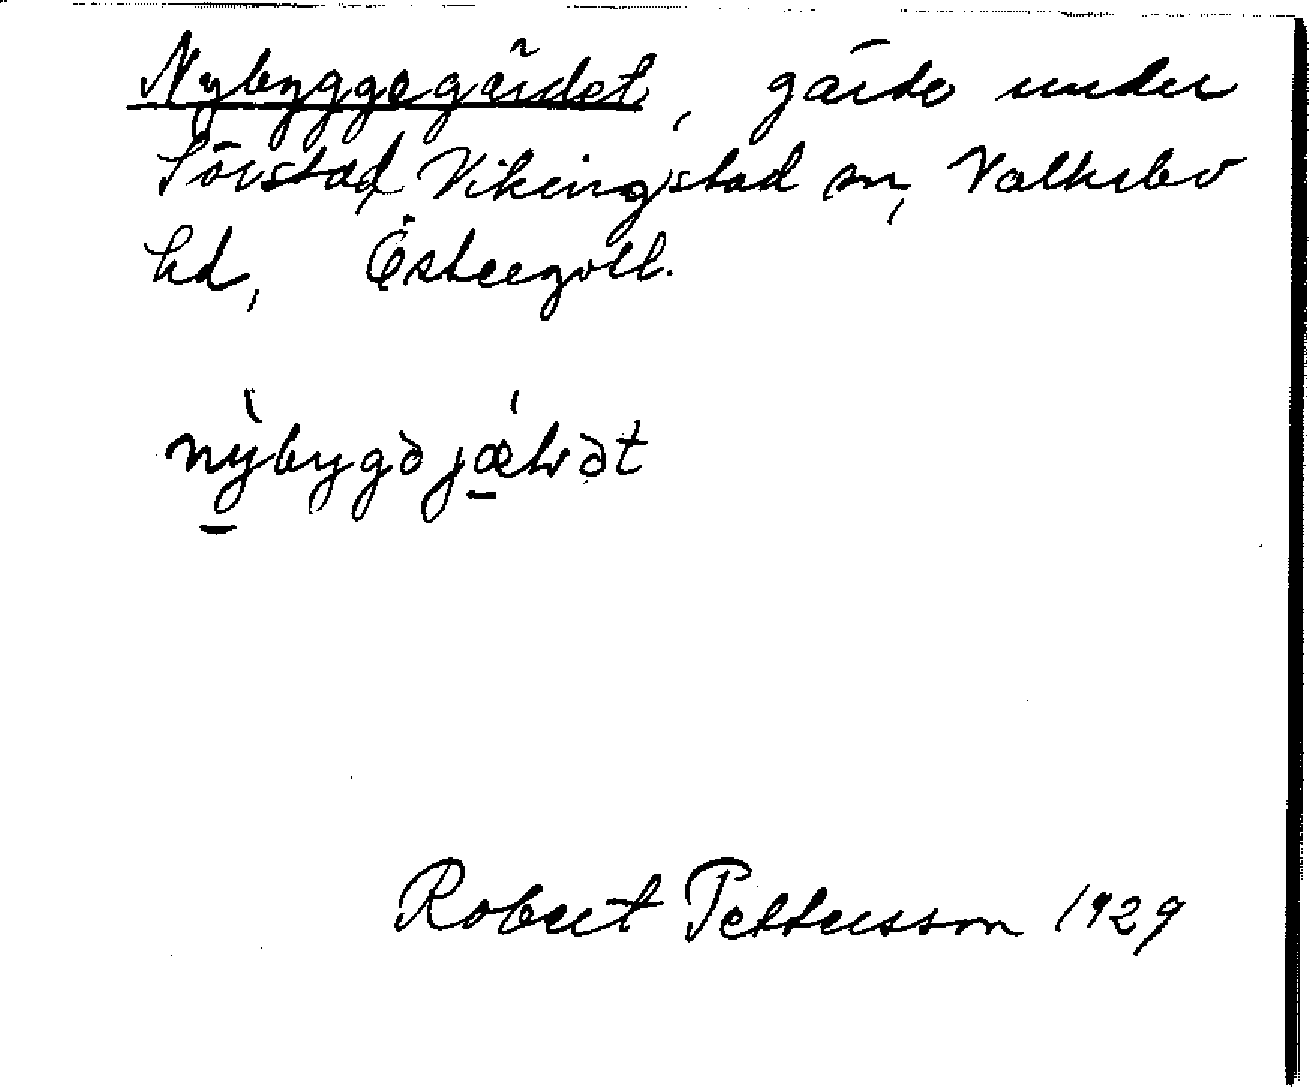 Nybyggegärdet, gärde under
Sörstad, Vikingstad sn, Valkebo
hd, Östergötl.
Robert Pettersson 1929